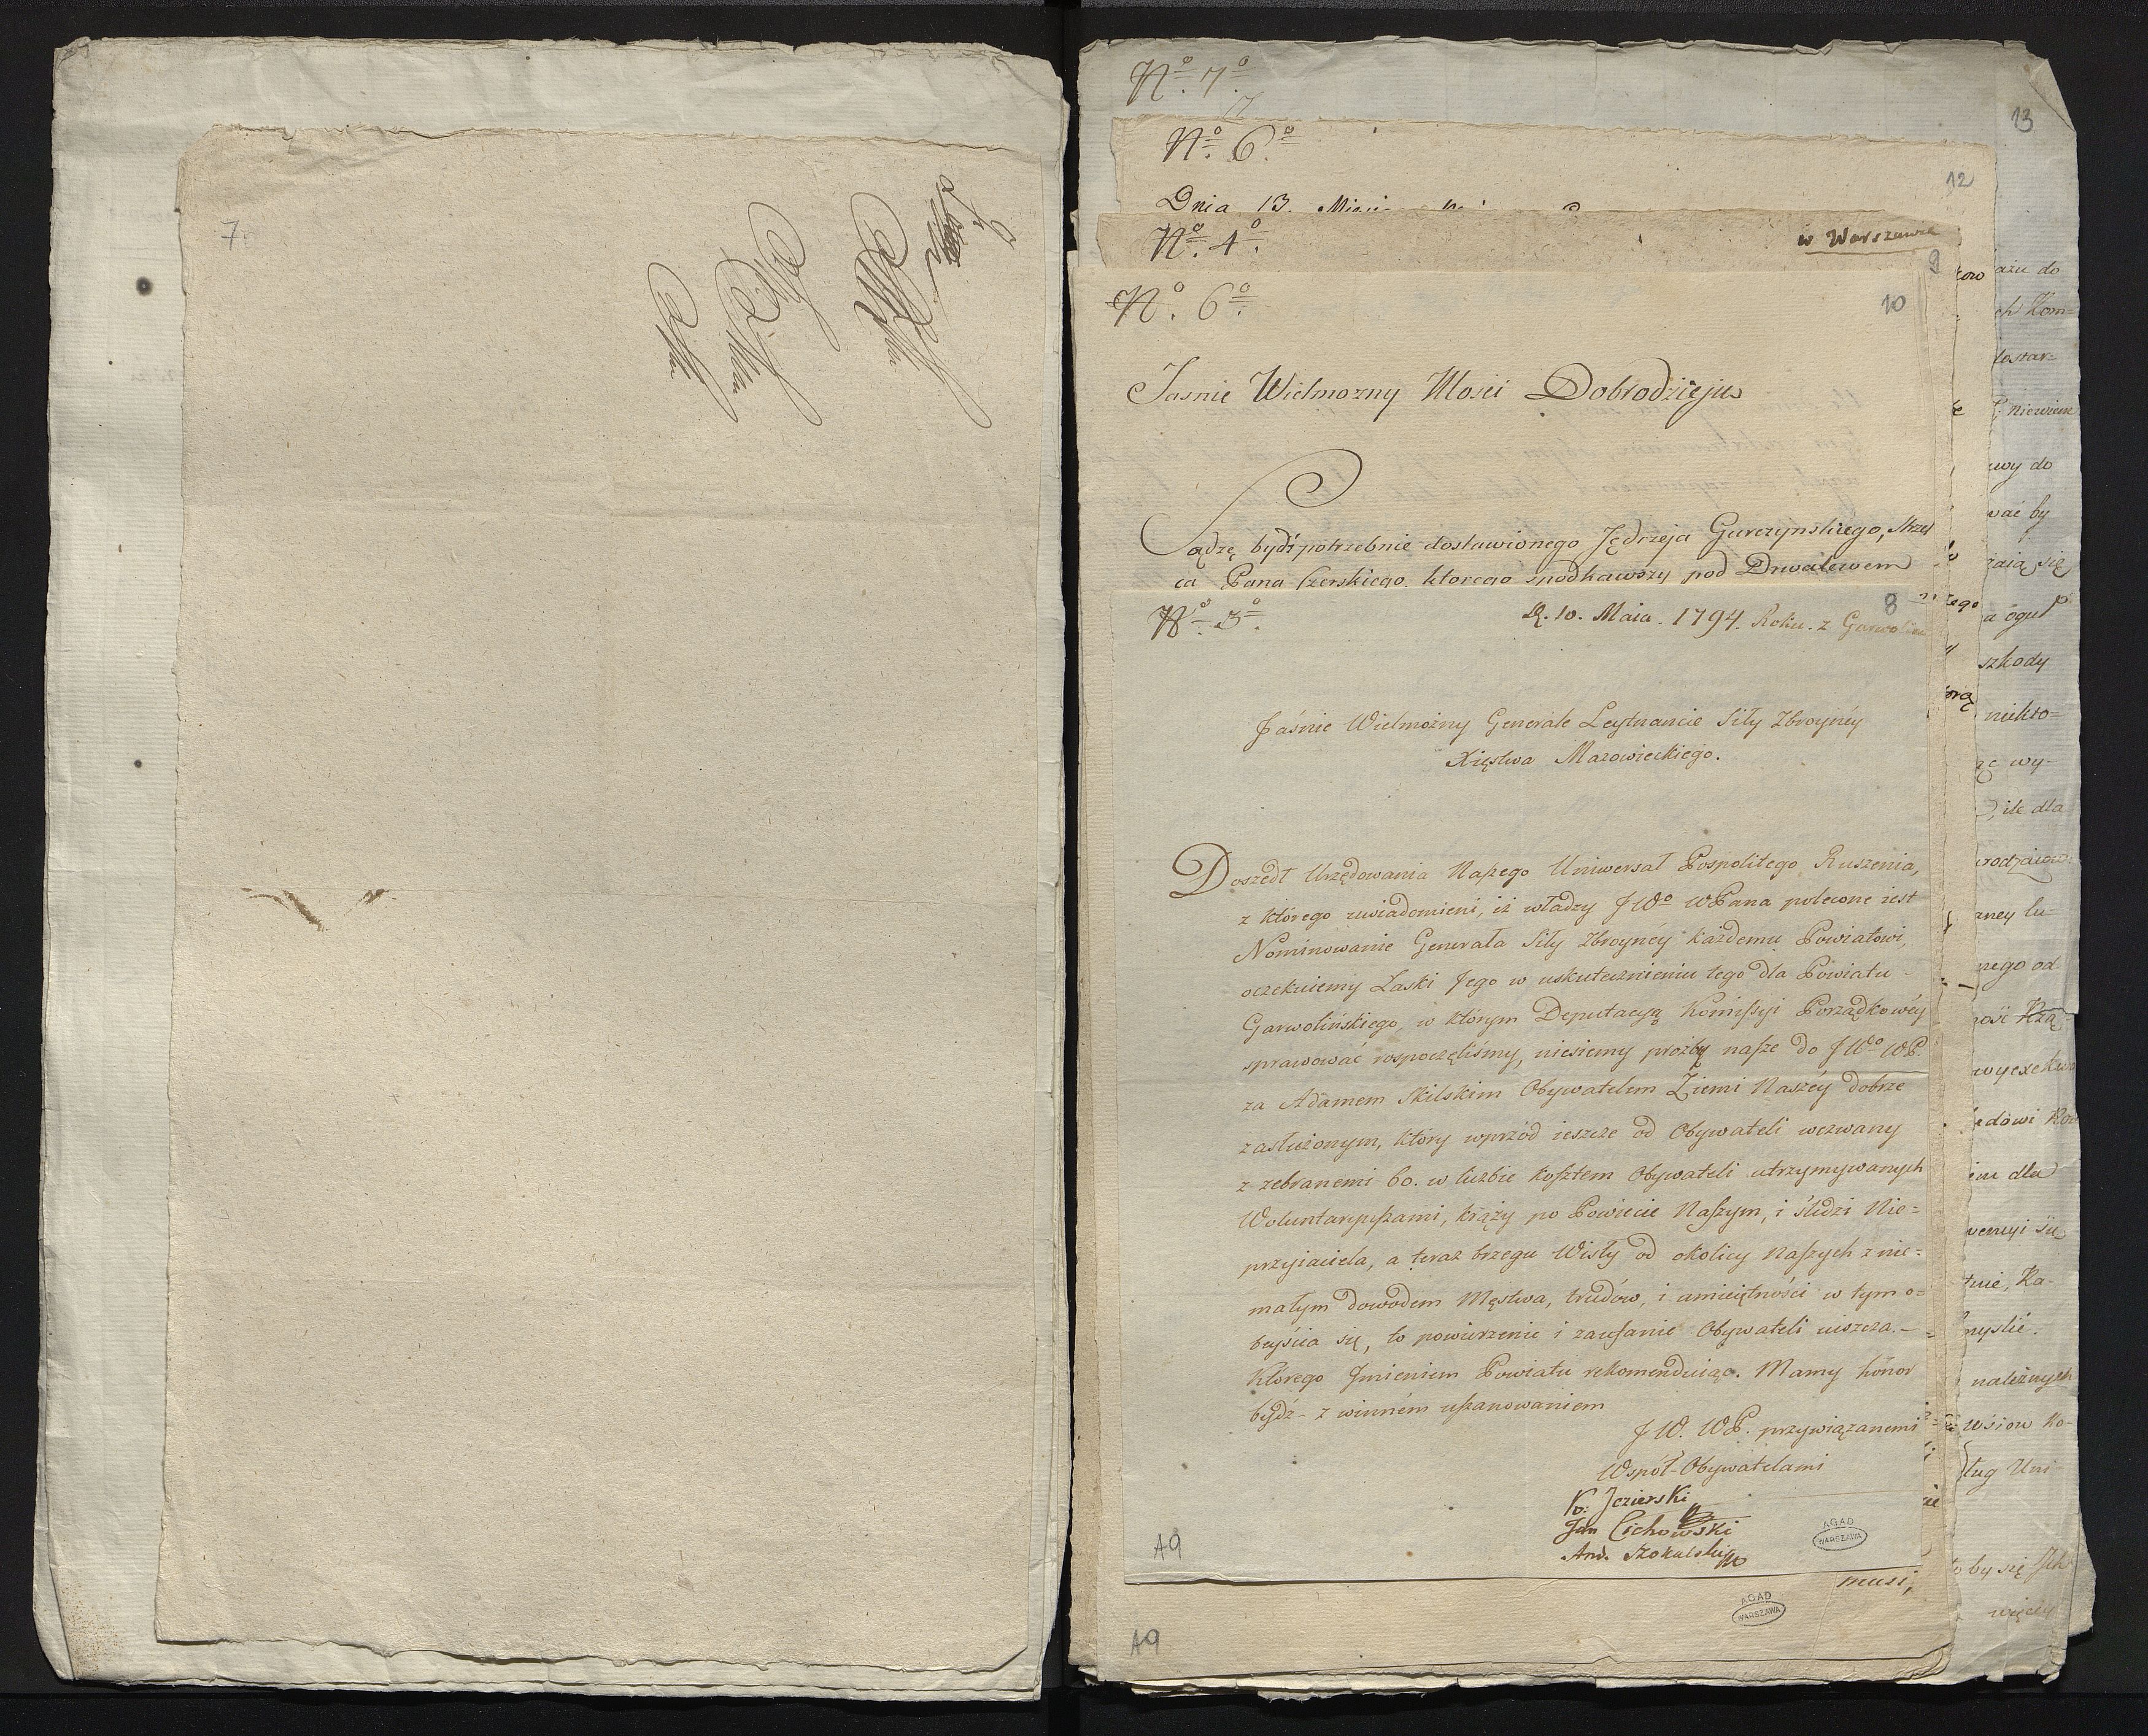 7
Nº. 7º.
13
Nº. 6º.
12
Dnia 13.
Nº. 4º.
w Warszawie
9
Nº. 6º.
10
Jasnie Wielmozny Mosci Dobrodzieju
Sądzę bydź potrzebnie dostawionego Jędrzeja Gurczynskiego, strzel
ca Pana Czerskiego ktorego spodkawszy pod Drwalewem
Nº. 5º.
8
D. 10. Maia. 1794. Roku. z Garwolina
Jaśnie Wielmożny Generale Leytnancie Siły Zbroynéy
Xięstwa Mazowieckiego.
Doszedł Urzędowania Naszego Uniwersał Pospolitego Ruszenia,
z którego uwiadomieni, iż władzy JWº WPana polecone iest
Nominowanie Generała Siły Zbroynéy każdemu Powiatowi,
oczekuiemy Łaski Jego w uskutecznieniu tego dla Powiatu
Garwolińskiego, w którym Deputacyą Kommissyi Porządkowéy
sprawować rospoczęliśmy, niesiemy prozbę nasze do JWº WP.
za Adamem Skilskim Obywatelem Ziemi Naszéy dobrze
zasłużonym, który wprzód ieszcze od Obywateli wezwany
z zebranemi 60. w liczbie kosztem Obywateli utrzymywanych
Woluntaryuszami, krąży po Powiecie Naszym, i śledzi Nie=
przyiaciela, a teraz brzegu Wisły od okolicy Naszych z nie=
małym dowodem Męstwa, trudów, i umieiętności w tym o=
beyścia się, to powierzenie i zaufanie Obywateli uiszcza.-
Którego Jmieniem Powiatu rekomenduiąc. Mamy honor
bydź - z winném uszanowaniem
JW. WP. przywiązanemi
Współ-Obywatelami
K. Jezierski
Jan Cichowski
And. Szokalski
AGAD
WARSZAWA
A9
musi,
AGAD
WARSZAWA
A9
ażu do
ch Kom=
dostar=
niewiem
uwy do
wać by
raią się
a ogul
szkody
niekto=
wy-
, ile dla
zney lu-
nego od
im dla
myslić.
należnych
ług Uni-
więcey